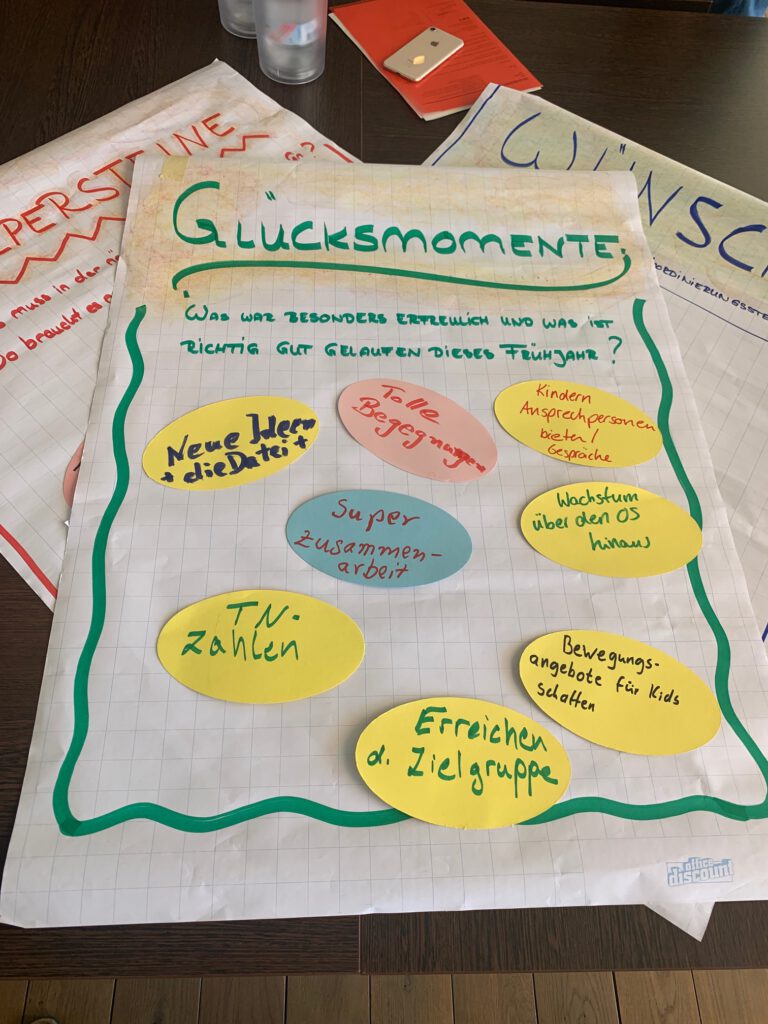 GLÜCKSMOMENTE
WAS WAR BESONDERS ERFREULICH UND WAS IST
RICHTIG GUT GELAUFEN DIESES FRÜHJAHR?
Neue Ideen
+ die Datei +
Tolle
Begegnungen
Kindern
Ansprechpersonen
bieten /
Gespräche
Super
Zusammen-
arbeit
Wachstum
über den OS
hinaus
TN.
Zahlen
Bewegungs-
angebote für Kids
schaffen
Erreichen
d. Zielgruppe
office
discount
LPERSTEINE
muss in der
Do braucht es
WÜNSCH
ORDINIERUNGSSTE